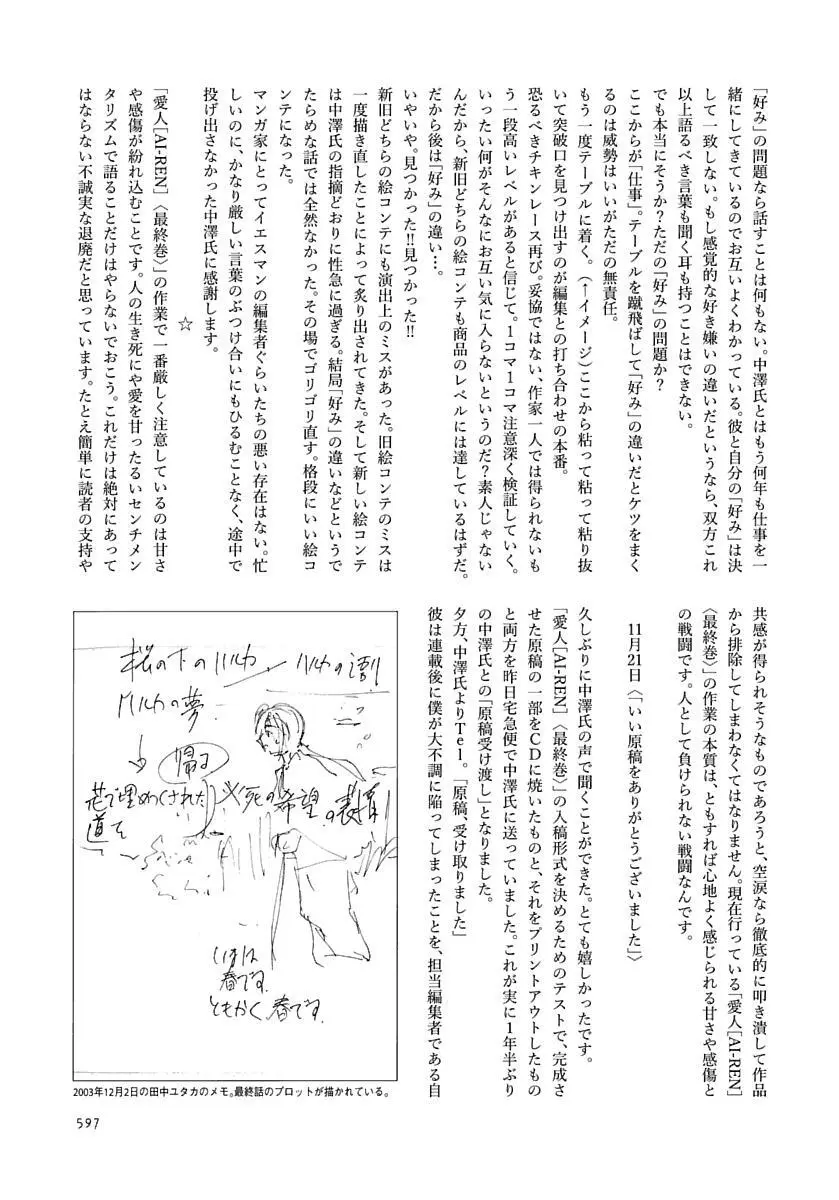 「好み」の問題なら話すことは何もない。中澤氏とはもう何年も仕事を一
緒にしてきているのでお互いよくわかっている。彼と自分の「好み」は決
して一致しない。もし感覚的な好き嫌いの違いだというなら、双方これ
以上語るべき言葉も聞く耳も持つことはできない。
でも本当にそうか?ただの「好み」の問題か?
ここからが「仕事」。テーブルを蹴飛ばして「好み」の違いだとケツをまく
るのは威勢はいいがただの無責任。
もう一度テーブルに着く。(↑イメージ)ここから粘って粘って粘り抜
いて突破口を見つけ出すのが編集との打ち合わせの本番。
恐るべきチキンレース再び。妥協ではない、作家一人では得られないも
う一段高いレベルがあると信じて。1コマ1コマ注意深く検証していく。
いったい何がそんなにお互い気に入らないというのだ?素人じゃない
んだから、新旧どちらの絵コンテも商品のレベルには達しているはずだ。
だから後は「好み」の違い…。
いやいや。見つかった!!見つかった!!
新旧どちらの絵コンテにも演出上のミスがあった。旧絵コンテのミスは
一度描き直したことによって炙り出されてきた。そして新しい絵コンテ
は中澤氏の指摘どおりに性急に過ぎる。結局「好み」の違いなどというで
たらめな話では全然なかった。その場でゴリゴリ直す。格段にいい絵コ
ンテになった。
マンガ家にとってイエスマンの編集者ぐらいたちの悪い存在はない。忙
しいのに、かなり厳しい言葉のぶつけ合いにもひるむことなく、途中で
投げ出さなかった中澤氏に感謝します。
☆
「愛人[AI-REN]〈最終巻〉」の作業で一番厳しく注意しているのは甘さ
や感傷が紛れ込むことです。人の生き死にや愛を甘ったるいセンチメン
タリズムで語ることだけはやらないでおこう。これだけは絶対にあって
はならない不誠実な退廃だと思っています。たとえ簡単に読者の支持や
共感が得られそうなものであろうと、空涙なら徹底的に叩き潰して作品
から排除してしまわなくてはなりません。現在行っている「愛人[AI-REN]
〈最終巻〉」の作業の本質は、ともすれば心地よく感じられる甘さや感傷と
の戦闘です。人として負けられない戦闘なんです。
11月21日〈「いい原稿をありがとうございました」〉
久しぶりに中澤氏の声で聞くことができた。とても嬉しかったです。
「愛人[AI-REN]〈最終巻〉の入稿形式を決めるためのテストで、完成さ
せた原稿の一部をCDに焼いたものと、それをプリントアウトしたもの
と両方を昨日宅急便で中澤氏に送っていました。これが実に1年半ぶり
の中澤氏との「原稿受け渡し」となりました。
夕方、中澤氏よりTel。「原稿、受け取りました」
彼は連載後に僕が大不調に陥ってしまったことを、担当編集者である自
桜の下のハルカ
ハルカの夢
帰る
花で埋めつくされた
道を
死の希望の表情
いまは
春です。
ともかく春です。
2003年12月2日の田中ユタカのメモ。最終話のプロットが描かれている。
597